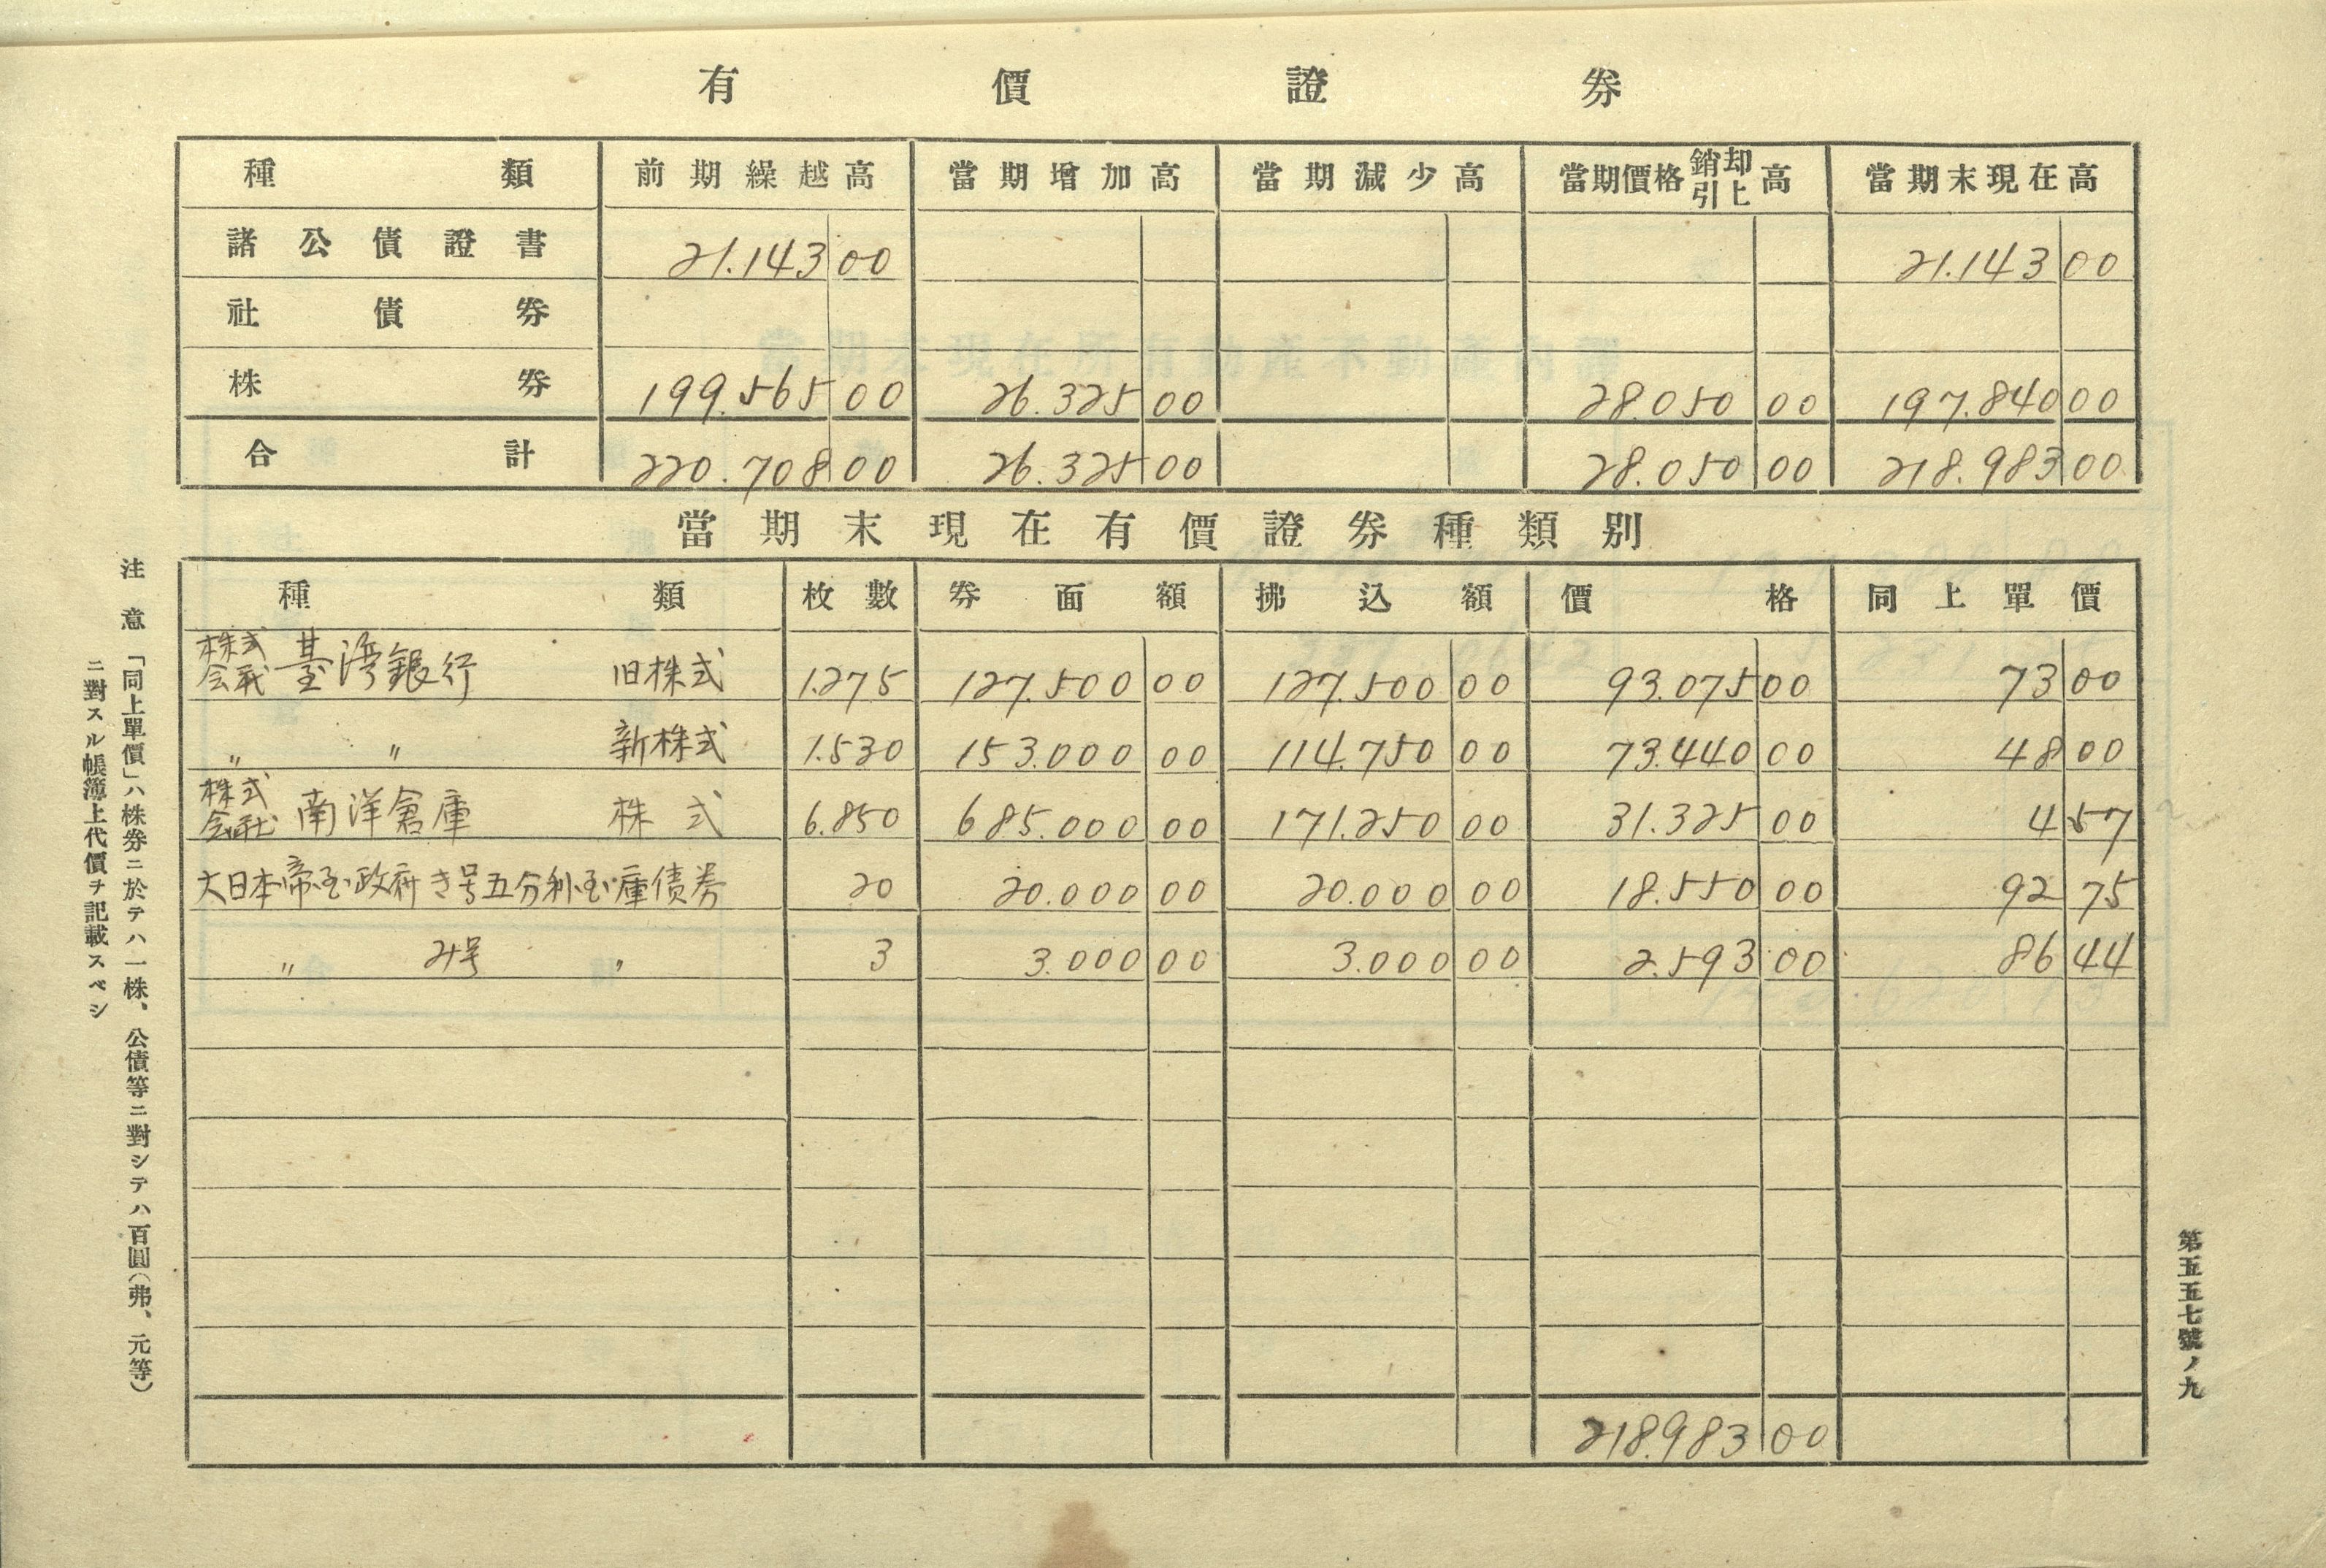 有價證券
種類 前期繰越高 當期增加高 當期減少高 當期價格銷却引上高 當期末現在高
諸公債證書 21.143 00 21.143 00
社債券
株券 199.565 00 26.325 00 28.050 00 197.840 00
合計 220.708 00 26.325 00 28.050 00 218.983 00
當期末現在有價證券種類別
種類 枚數 券面額 拂込額 價格 同上單價
株式会社 臺湾銀行 旧株式 1.275 127.500 00 127.500 00 93.075 00 73 00
〃 〃 新株式 1.530 153.000 00 114.750 00 73.440 00 48 00
株式会社 南洋倉庫 株式 6.850 685.000 00 171.250 00 31.325 00 4 57
大日本帝国政府き号五分利国庫債券 20 20.000 00 20.000 00 18.550 00 92 75
〃 み号 〃 3 3.000 00 3.000 00 2.593 00 86 44
218.983 00
注意「同上單價」ハ株券ニ於テハ一株、公債等ニ對シテハ百圓(弗、元等)
ニ對スル帳簿上代價ヲ記載スベシ
第五五七號ノ九